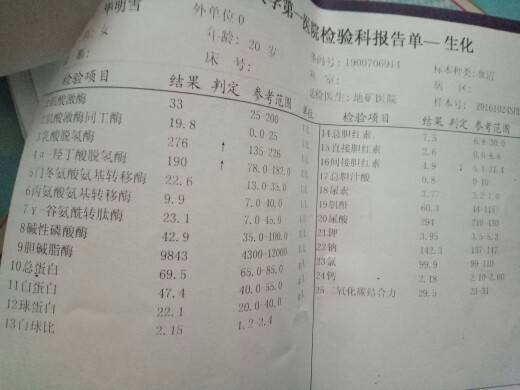 明雪
外单位0
第一医院检验科报告单—生化
女
年龄: 20 岁
条码号: 1900706914
标本种类: 血清
床 号:
室:
病 区:
送检医生: 地矿医院
样本号: 20161024
检验项目 结果 判定 参考范围 单位
1肌酸激酶 33 25-200
2肌酸激酶同工酶 19.8 0.0-25
3乳酸脱氢酶 276 ↑ 135-226
4α-羟丁酸脱氢酶 190 ↑ 78.0-182.0
5门冬氨酸氨基转移酶 22.6 13.0-35.0
6丙氨酸氨基转移酶 9.9 7.0-40.0
7γ-谷氨酰转肽酶 23.1 7.0-45.0
8碱性磷酸酶 42.9 35.0-100.0
9胆碱脂酶 9843 4300-12000
10总蛋白 69.5 65.0-85.0
11白蛋白 47.4 40.0-55.0
12球蛋白 22.1 20.0-40.0
13白球比 2.15 1.2-2.4
检验项目 结果 判定 参考范围
14总胆红素 7.5
15直接胆红素 2.6
16间接胆红素 4.9 ↓
17总胆汁酸 0.8 0-10
18尿素 3.77
19肌酐 60.3
20尿酸 294
21钾 3.95 3.5-5.3
22钠 142.3 137-147
23氯 99.9 99-110
24钙 2.18
25二氧化碳结合力 29.5 21-31